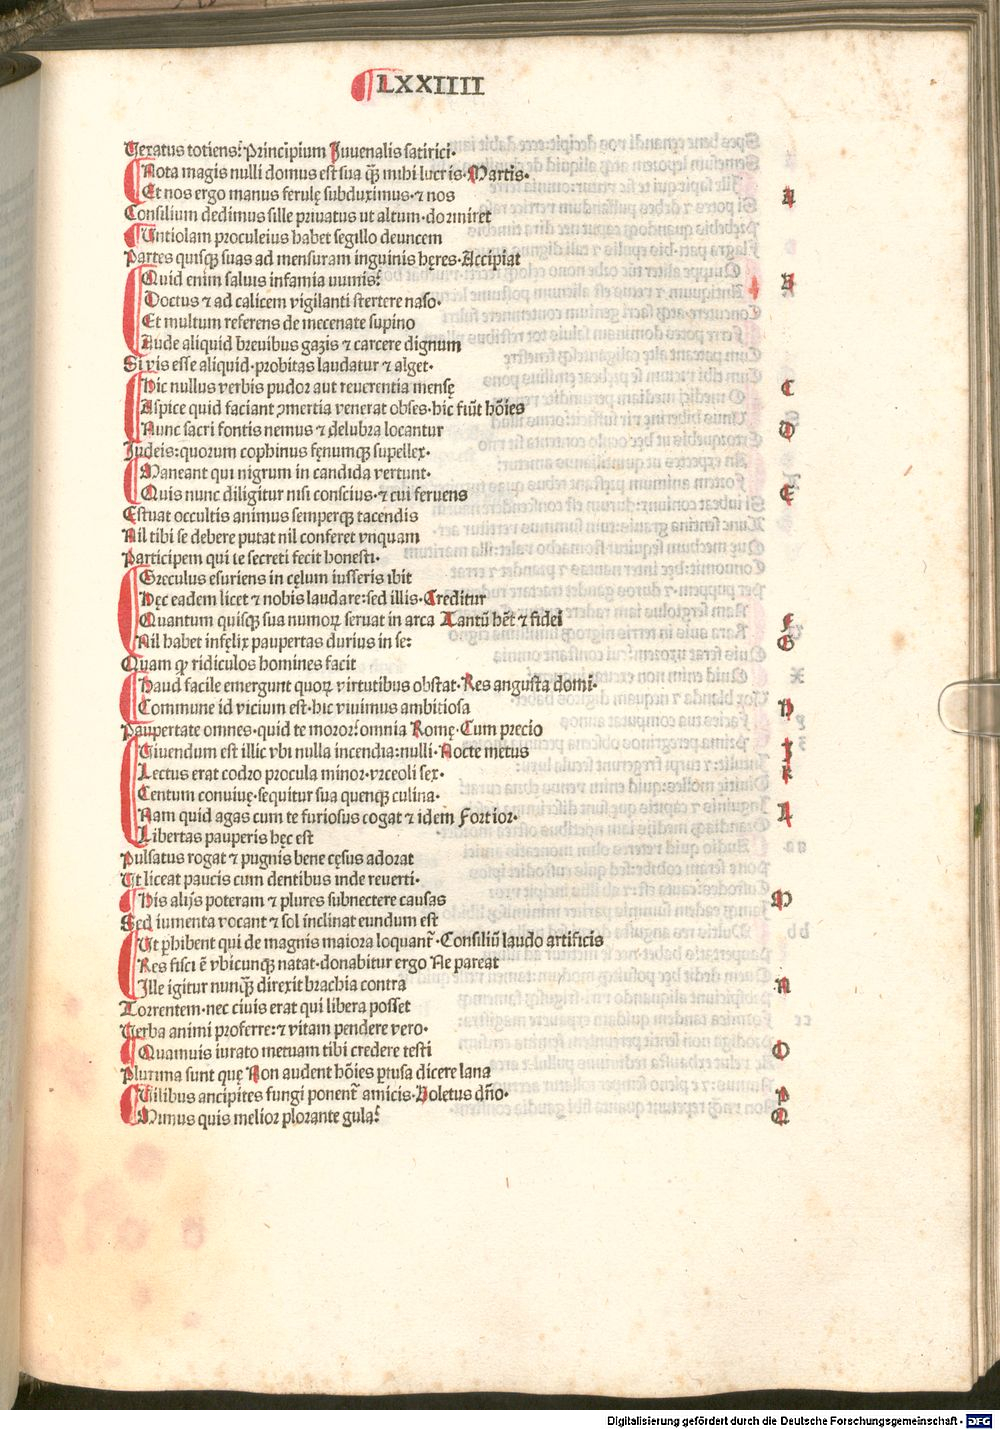 LXXIIII
Vexatus totiens? Principium Juuenalis satirici·
Nota magis nulli domus est sua q̃ mihi lucris·Martis·
Et nos ergo manus ferulę subduximus·⁊ nos A
Consilium dedimus sille priuatus ut altum·dormiret
Untiolam proculeius habet segillo deuncem
Partes quisqꝫ suas ad mensuram inguinis hęres·Accipiat
Quid enim saluis infamia numis? B
Doctus ⁊ ad calicem vigilanti stertere naso·
Et multum referens de mecenate supino
Aude aliquid breuibus gazis ⁊ carcere dignum
Si vis esse aliquid·probitas laudatur ⁊ alget·
Hic nullus verbis pudor aut reuerentia mensę C
Aspice quid faciant ꝯmertia venerat obses·hic fiũt hõies
Nunc sacri fontis nemus ⁊ delubra locantur D
Judeis:quorum cophinus fęnumqꝫ supellex·
Maneant qui nigrum in candida vertunt·
Quis nunc diligitur nisi conscius·⁊ cui feruens E
Estuat occultis animus semperqꝫ tacendis
Nil tibi se debere putat nil conferet vnquam
Participem qui te secreti fecit honesti·
Greculus esuriens in cęlum iusseris ibit
Hęc eadem licet ⁊ nobis laudare:sed illis·Creditur
Quantum quisqꝫ sua numoꝝ seruat in arca Tantũ hẽt ⁊ fidei F
Nil habet infelix paupertas durius in se: G
Quam ꝙ ridiculos homines facit
Haud facile emergunt quoꝝ virtutibus obstat·Res angusta domi·
Commune id vicium est·hic viuimus ambitiosa H
Paupertate omnes·quid te moror:omnia Romę·Cum precio
Viuendum est illic vbi nulla incendia:nulli·Nocte metus J
Lectus erat codro procula minor·vrceoli sex· K
Centum conuiuę·sequitur sua quenqꝫ culina·
Nam quid agas cum te furiosus cogat ⁊ idem Fortior· L
Libertas pauperis hęc est
Pulsatus rogat ⁊ pugnis bene cęsus adorat
Ut liceat paucis cum dentibus inde reuerti·
His alijs poteram ⁊ plures subnectere causas M
Sed iumenta vocant ⁊ sol inclinat eundum est
Ut ꝑhibent qui de magnis maiora loquant᷒·Consiliũ laudo artificis
Res fisci ẽ vbicunqꝫ natat·donabitur ergo Ne pereat
Ille igitur nunq̃ direxit brachia contra N
Torrentem·nec ciuis erat qui libera posset
Verba animi proferre:⁊ vitam pendere vero·
Quamuis iurato metuam tibi credere testi O
Plurima sunt quę Non audent hõies ꝑtusa dicere lana
Vilibus ancipites fungi ponent᷒ amicis·Boletus dño· P
Minus quis melior plorante gula? Q
Digitalisierung gefördert durch die Deutsche Forschungsgemeinschaft - DFG